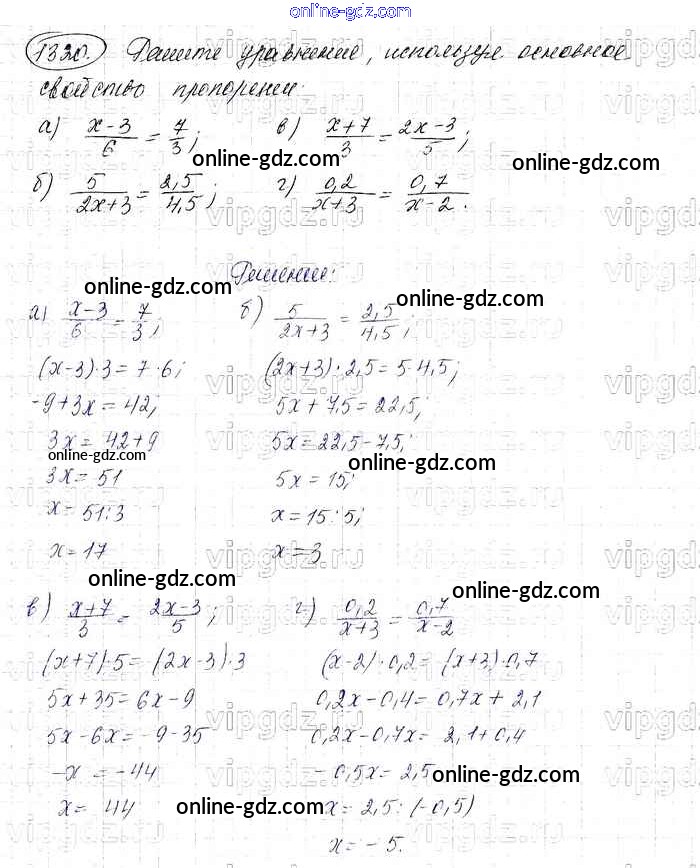 online-gdz.com
1320. Решите уравнение, используя основное
свойство пропорции:
а) (x-3)/6 = 7/3; в) (x+7)/3 = (2x-3)/5;
online-gdz.com online-gdz.com
б) 5/(2x+3) = 2,5/4,5; г) 0,2/(x+3) = 0,7/(x-2).
vipgdz.ru
Решение:
online-gdz.com online-gdz.com
а) (x-3)/6 = 7/3; б) 5/(2x+3) = 2,5/4,5;
(x-3)·3 = 7·6; (2x+3)·2,5 = 5·4,5;
-9+3x = 42; 5x+7,5 = 22,5;
3x = 42+9 5x = 22,5-7,5;
online-gdz.com online-gdz.com
3x = 51 5x = 15;
x = 51:3 x = 15:5;
x = 17 x = 3
online-gdz.com online-gdz.com
в) (x+7)/3 = (2x-3)/5; г) 0,2/(x+3) = 0,7/(x-2)
(x+7)·5 = (2x-3)·3 (x-2)·0,2 = (x+3)·0,7
5x+35 = 6x-9 0,2x-0,4 = 0,7x+2,1
5x-6x = -9-35 0,2x-0,7x = 2,1+0,4
-x = -44 -0,5x = 2,5
online-gdz.com
x = 44 x = 2,5:(-0,5)
online-gdz.com
x = -5.